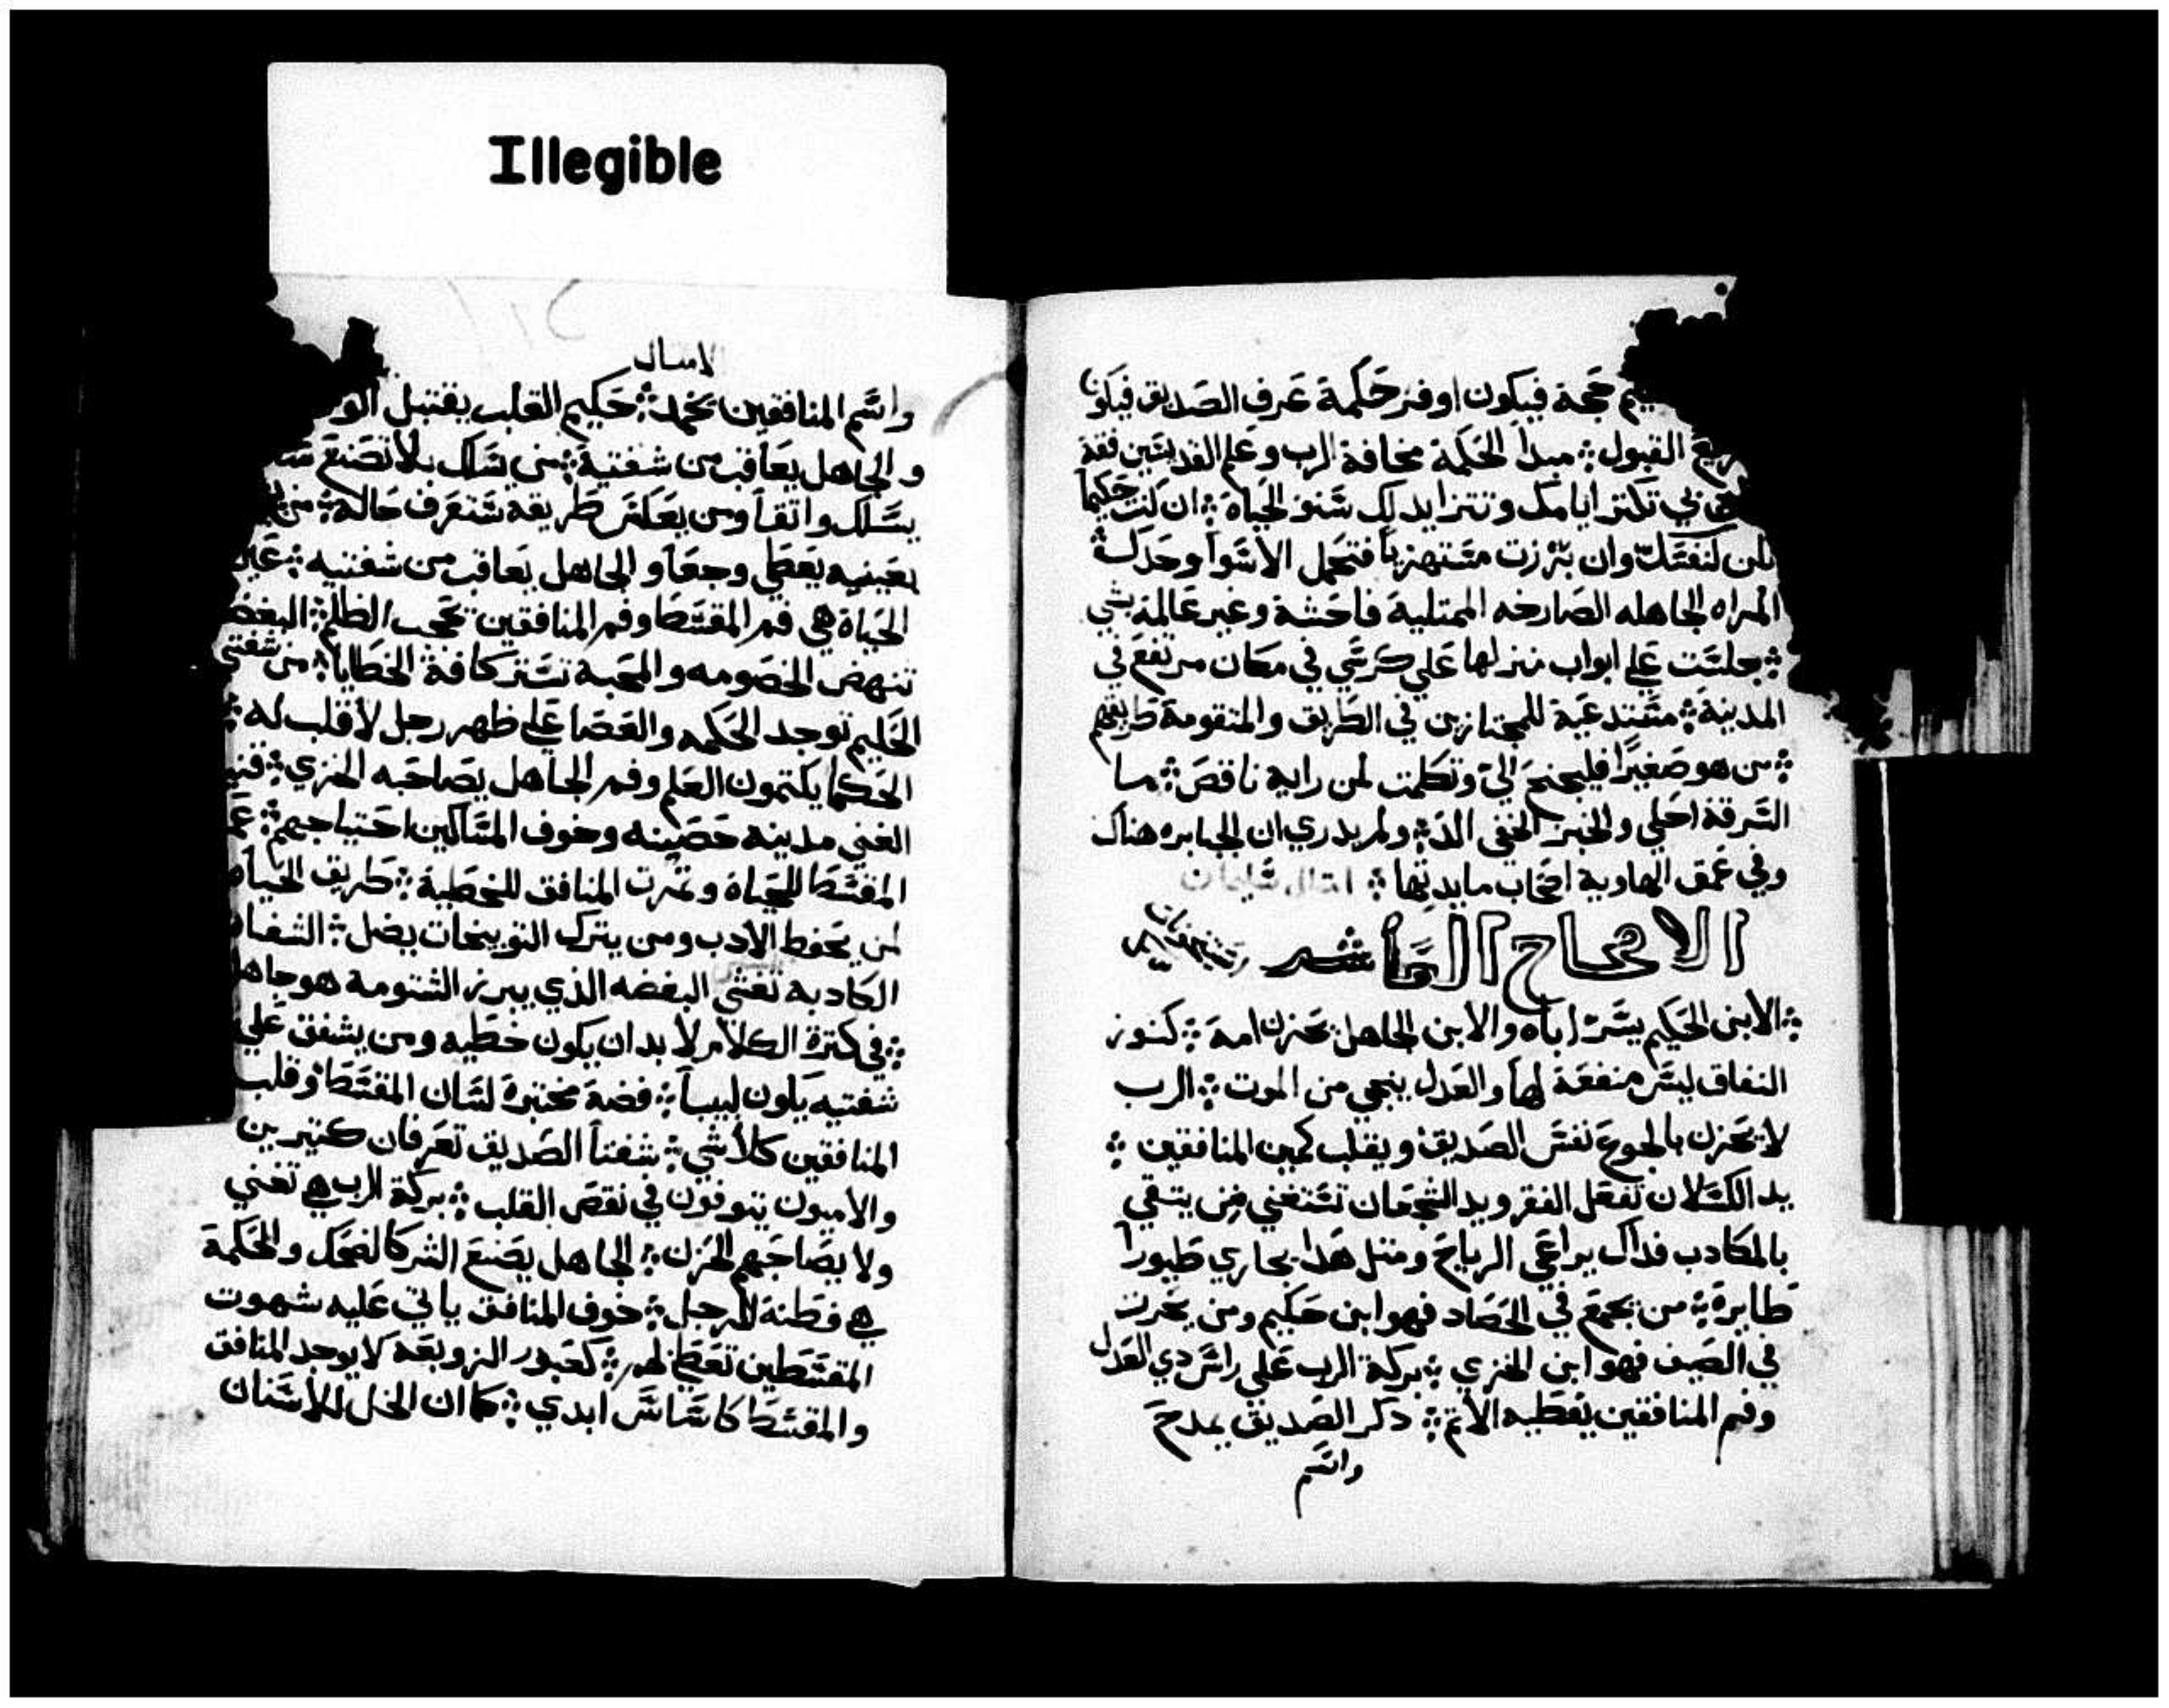 Illegible
حجة فيكون اوفر حكمة عرف الصديق فيكون
القبول ܀ مبدأ الحكمة مخافة الرب وعلم القديسين فقه
بي تكتر ايامك وتتزايد لك سنو الحياة ܀ ان كنت حكيماً
لنفسك وان برزت مستهزياً فتحمل الاسوا وحدك ܀
المراه الجاهله الصارخه الممتلية فاحشة وغير عالمة بشي
܀ جلست علي ابواب منزلها علي كرسي في مكان مرتفع في
المدينة ܀ متستدعية للمجتازين في الطريق والمتقومة طريقهم
܀ من هو صغيراً فليجنح اليّ وتكلمت لمن رايه ناقص ܀ ما
السرقة احلي والخبز الخفي الذ ܀ ولم يدري ان الجبابره هناك
وفي عمق الهاوية اصحاب مايدتها ܀ امتال سليمان
الاصحاح العاشر
܀ الابن الحكيم يسرّ اباه والابن الجاهل يحزن امه ܀ كنوز
النفاق ليس منفعة لها والعدل ينجي من الموت ܀ الرب
لا يحزن بالجوع نفس الصديق ويقلب كمين المنافقين ܀
يد الكسلان تفعل الفقر ويد الشجعان تستغني من يتقي
بالمكادب فداك يراعي الرياح ومتل هدا يجاري طيوراً
طايرة ܀ من يجمع في الحصاد فهو ابن حكيم ومن يخرت
في الصيف فهو ابن الخزي ܀ بركة الرب علي راس دي العدل
وفم المنافقين يغطيه الاتم ܀ دكر الصديق بمدح
واسم
لامسال
واسم المنافقين يخمد ܀ حكيم القلب يقتبل الو
والجاهل يعاقب من شفتية ܀ من سلك بلا تصنع
يسلك واتقاً ومن يعكس طريقه ستعرف حاله ܀
بعينيه يعطي وجعاً والجاهل يعاقب من شفتيه ܀ عين
الحياة هي فم المقسط وفم المنافقين تحجب الظلم ܀ البغض
تنهض الخصومه والمحبة تستر كافة الخطايا ܀ من شفتي
الحليم توجد الحكمه والعصا علي ظهر رجل لا قلب له ܀
الحكما يكتمون العلم وفم الجاهل يصاحبه الخزي ܀
الغني مدينه حصينه وخوف المساكين احتياجهم ܀
المقسط للحياة وتمرت المنافق للخطية ܀ طريق الحياه
لمن يحفظ الادب ومن يترك التوبيخات يضل ܀ الشفاه
الكادبه تغشي البغضه الذي يبرز الشتومة هو جاهل
܀ في كترة الكلام لا بد ان يكون خطيه ومن يشفق علي
شفتيه يكون لبيباً ܀ فضة مختبرة لسان المقسط وقلب
المنافقين كلا شي ܀ شفتا الصديق تعرفان كتيرين
والاميون يتوفون في نقص القلب ܀ بركة الرب هي تغني
ولا يصاحبهم الحزن ܀ الجاهل يصنع الشر كالضحك والحكمة
هي فطنة للرجل ܀ خوف المنافق ياتي عليه شهوت
المقسطين تعطي لهم ܀ كعبور الزوبعة لا يوجد المنافق
والمقسط كاساس ابدي ܀ كما ان الخل للاسنان